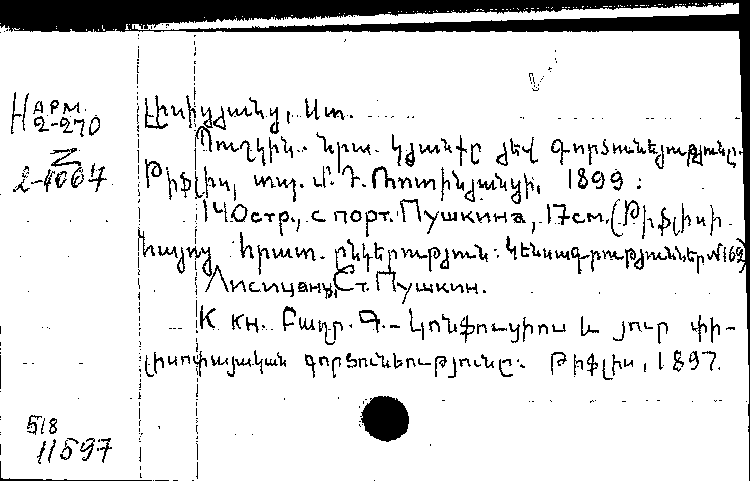 Н АРМ.
2-270
2-4067
Լիսիցյանց, Ստ.
Պուշկին. նրա կյանքը յեվ գործունեյությունը.
Թիֆլիս, տպ. Մ. Դ. Ռոտինյանցի, 1899:
140стр., с порт. Пушкина, 17см. (Թիֆլիսի
հայոց հրատ. ընկերություն: Կենսագրություններ №162)
Лисицянц, Ст. Пушкин.
К кн. Բաղր. Գ.- Կոնֆուցիոս և յուր փի-
լիսոփայական գործունեությունը: Թիֆլիս, 1897.
518
11597